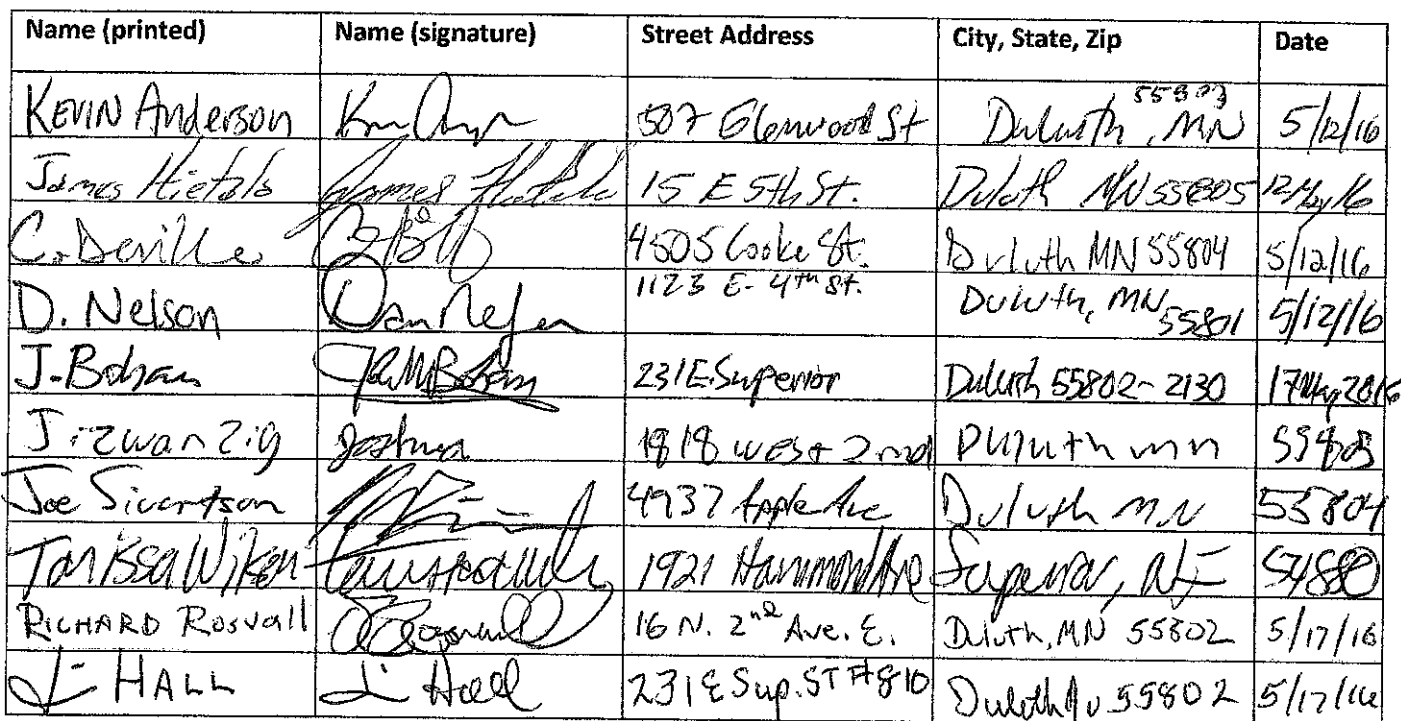 Name (printed) Name (signature) Street Address City, State, Zip Date
KEVIN Anderson 507 Glenwood St Duluth, MN 55803 5/12/16
James Hietala James Hietala 15 E 5th St. Duluth MN 55805 12 May 16
C. Deville 4505 Cooke St. Duluth MN 55804 5/12/16
D. Nelson Dan Nelson 1123 E. 4th St. Duluth, MN 55801 5/12/16
J. Bohan 231 E. Superior Duluth 55802-2130 17 May 2016
Joshua 1818 west 2nd Duluth mn
Joe Sivertson 4937 Apple Ave Duluth MN 55804
1921 Hammond Ave Superior, WI 54880
RICHARD Rosvall 16 N. 2nd Ave. E. Duluth, MN 55802 5/17/16
HALL Hall 231 E Sup. ST #810 Duluth 55802 5/17/16